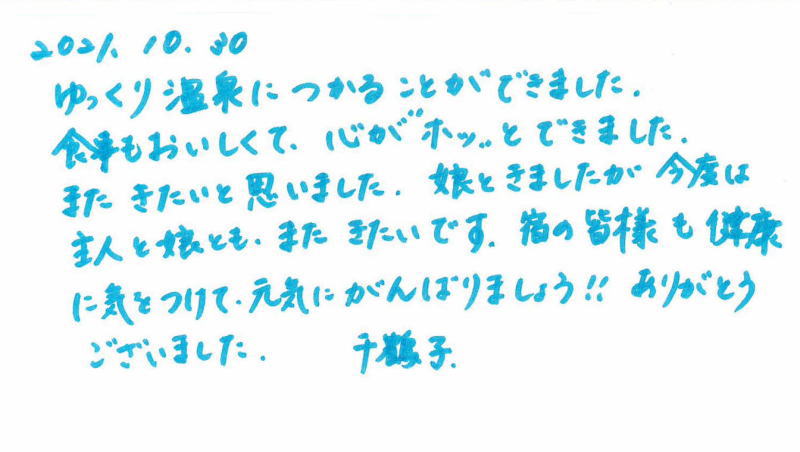 2021.10.30
ゆっくり温泉につかることができました.
食事もおいしくて、心が"ホッ"とできました.
またきたいと思いました. 娘ときましたが今度は
主人と娘とも、またきたいです。宿の皆様も健康
に気をつけて、元気にがんばりましょう!! ありがとう
ございました. 千鶴子.